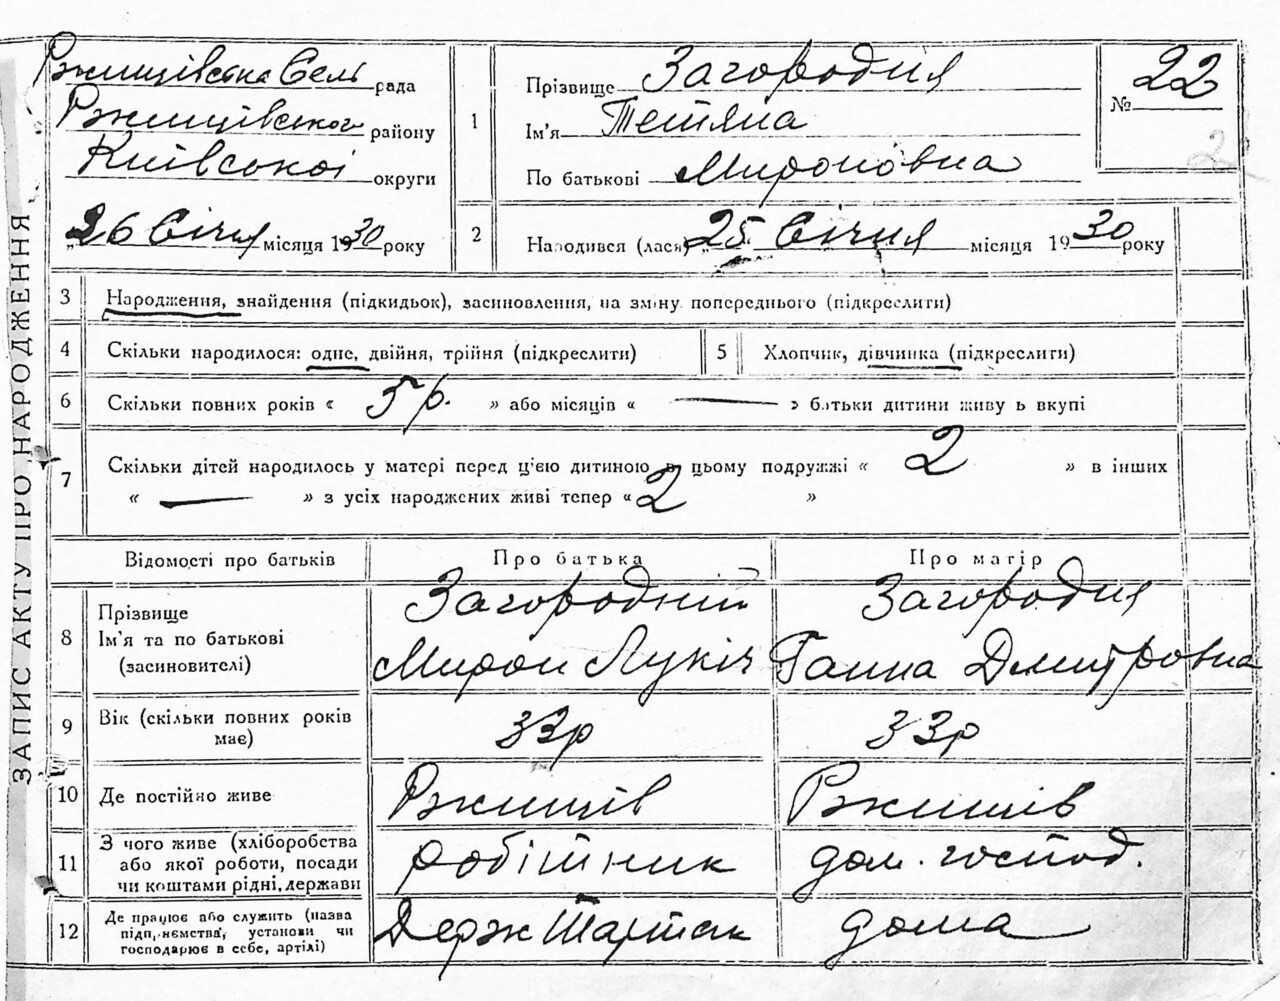 ЗАПИС АКТУ ПРО НАРОДЖЕННЯ
Ржищівська Сель рада
Ржищівського району
Київської округи
„26 Січня місяця 1930 року
1
Прізвище Загородня
Ім'я Тетяна
По батькові Мироновна
№ 22
2
2
Народився (лася) „25 Січня місяця 1930 року
3 Народження, знайдення (підкидьок), засиновлення, на зміну попереднього (підкреслити)
4 Скільки народилося: одне, двійня, трійня (підкреслити)
5 Хлопчик, дівчинка (підкреслити)
6 Скільки повних років « 5 р. » або місяців « — » батьки дитини живу ь вкупі
7 Скільки дітей народилось у матері перед ц'ею дитиною в цьому подружжі « 2 » в інших
« — » з усіх народжених живі тепер « 2 »
Відомості про батьків
Про батька
Про матір
8
Прізвище
Ім'я та по батькові
(засиновителі)
Загородній
Мирон Лукіч
Загородня
Ганна Дмитровна
9
Вік (скільки повних років
має)
33р
33р
10 Де постійно живе
Ржищів
Ржищів
11
З чого живе (хліборобства
або якої роботи, посади
чи коштами рідні, держави
робітник
дом. господ.
12
Де працює або служить (назва
підп,иємства, установи чи
господарює в себе, артілі)
Держ Тартак
дома